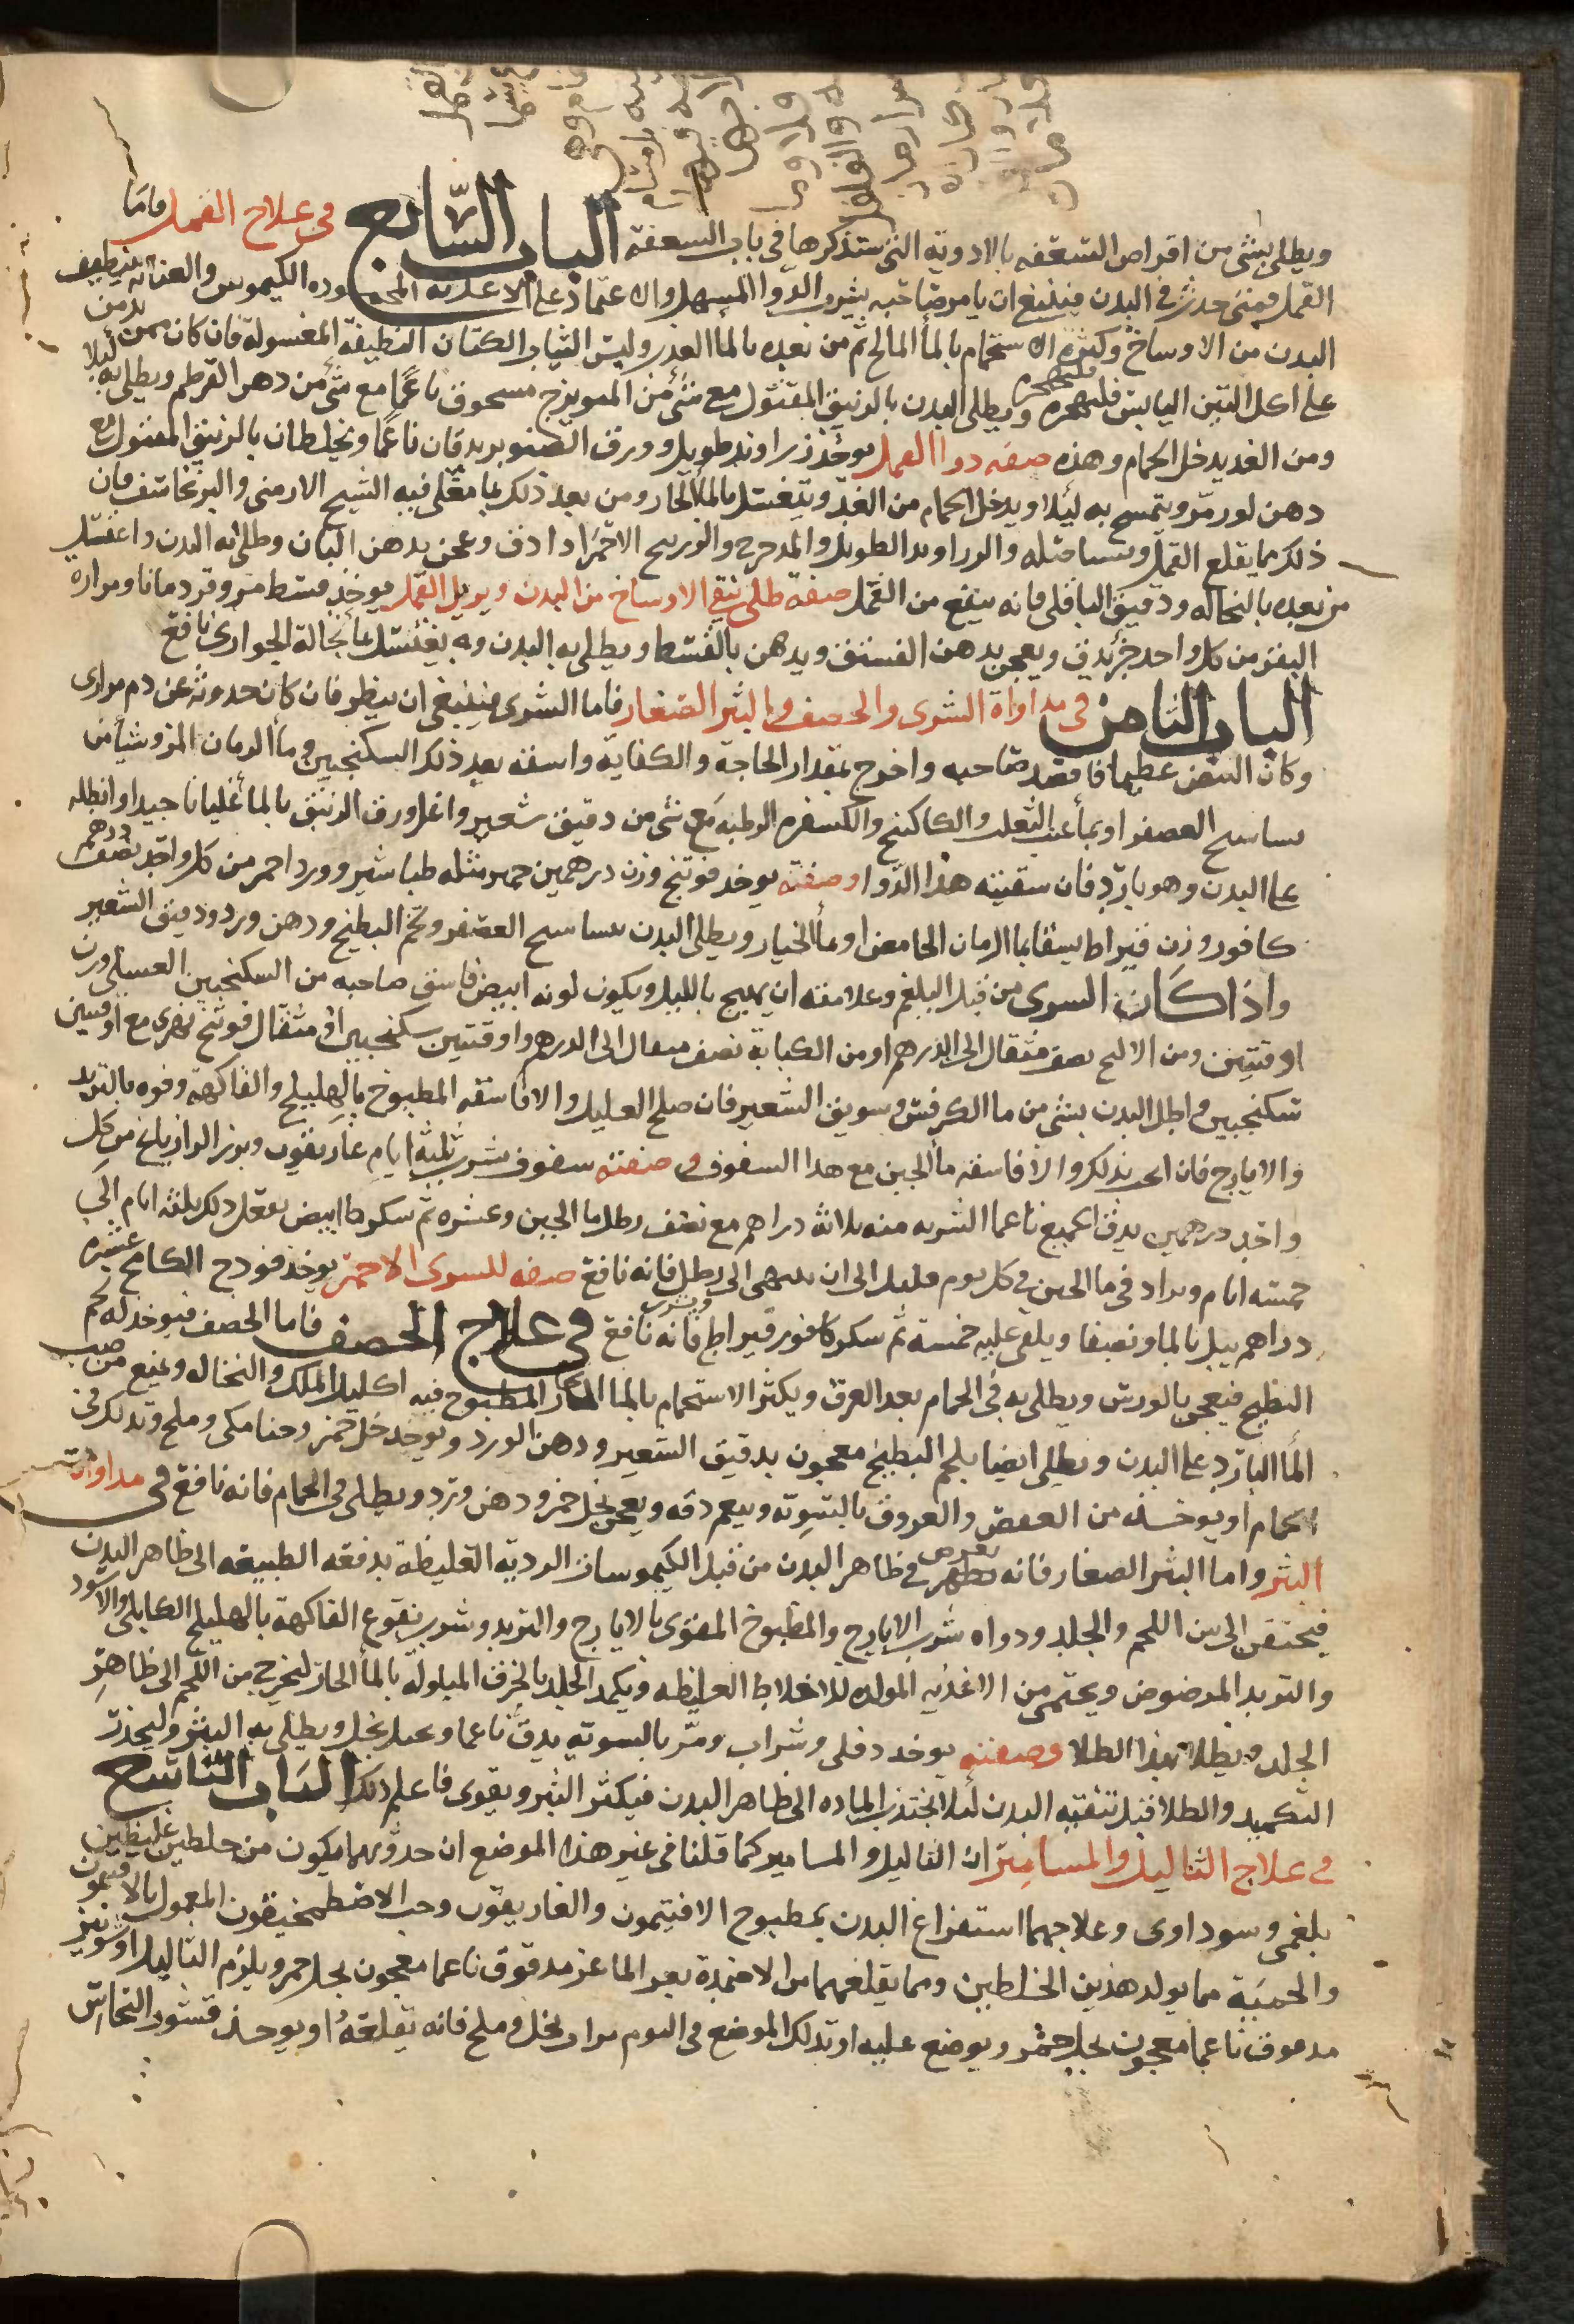 ويطلى بشى من اقراص السعفه بالادوية التى ستذكرها فى باب السعفة الباب السابع فى علاج القمل فاما
القمل فمتى حدث فى البدن فينبغى ان يامر صاحبه بشرب الدوا المسهل والاعتماد على الاغذيه المحموده الكيموس والعنايه بتنظيف
البدن من الاوساخ وكثره الاستحمام بالما المالح ثم من بعده بالما العذب ولبس الثياب الكتان النظيفة المغسولة فان كان ممن يدمن
على اكل التين اليابس فليهجره ويطلى البدن بالزيبق المقتول مع شئ من الميويزج مسحوق ناعما مع شى من دهن القرطم ويطلى به ليلا
ومن الغد يدخل الحمام وهذه صفه دوا القمل يوخذ زراوند طويل وورق الصنوبر يدقان ناعما ويخلطان بالزيبق المقتول مع
دهن لوز مر ويتمسح به ليلا ويدخل الحمام من الغد ويغتسل بالما الحار ومن بعد ذلك بما مغلى فيه الشيح الارمنى والبرنجاسف فان
ذلك مما يقلع القمل والزراوند الطويل والمدحرج والزرنيخ الاحمر اذا دق وعجن بدهن البان وطلى به البدن واغتسل
من بعده بالنخاله ودقيق الباقلى فانه ينفع من القمل صفة طلى ينقى الاوساخ من البدن ويزيل القمل يوخذ قسط مر وقردمانا ومرارة
البقر من كل واحد جز يدق ويعجن بدهن الفستق ويدهن بالقسط ويطلى به البدن وبه يغتسل بما نخالة الحوارى نافع
الباب الثامن فى مداواة الشرى والحصف والبثر الصغار فاما الشرى فينبغى ان ينظر فان كان حدوثه عن دم مرارى
وكان النبض عظيما فافصد صاحبه واخرج بمقدار الحاجة والكفاية واسقه بعد ذلك السكنجبين وما الرمان المز وشيأ من
العصفر او بما عنب الثعلب والكاكنج والكسفره الرطبه مع شى من دقيق شعير واغل ورق الزنبق بالما غليانا جيدا وانطله
على البدن وهو بارد فان سقيته هذا الدوا وصفته يوخذ فوتنج وزن درهمين مثله طباشير وورد احمر من كل واحد نصف درهم
كافور وزن قيراط يسقا بما الرمان الحامض او بما الخيار ويطلى البدن العصفر ولحم البطيخ ودهن ورد ودقيق الشعير
واذا كان السرى من قبل البلغم وعلامته ان يهيج بالليل ويكون لونه ابيض فاسق صاحبه من السكنجبين العسلى وزن
اوقتين ومن نصف مثقال الى الدرهم او من الكبابة نصف مثقال الى الدرهم واوقتين سكنجبين او مثقال فوتنج نهرى مع اوقتين
سكنجبين واطل البدن بشى من ما الكرفس وسويق الشعير فان صلح العليل والا فاسقه المطبوخ بالهليلج والفاكهة وقوه بالتربد
والايارج فان انجد بذلك والا فاسقه ما الجبن مع هذا السفوف وصفته سفوف يشرب ثلثة ايام غاريقون وبزر الرازيانج من كل
واحد درهمين يدق الجميع ناعما الشربه منه ثلاثة دراهم مع نصف رطل ما الجبن وعشره دراهم سكر ابيض يفعل ذلك ثلثه ايام الى
خمسة ايام ويزاد فى ما الجبن فى كل يوم قليلا الى ان ينتهى الى رطل فانه نافع صفه للسرى الاحمر يوخذ فودج الكامخ عشره
دراهم يبل بالما ويصفا ويلقى عليه خمسة دراهم سكر وكافور قيراط ويشرب فانه نافع فى علاج الحصف فاما الحصف فيوخذ له لحم
البطيخ فيعجن بالورس ويطلى به فى الحمام بعد العرق ويكثر الاستحمام بالما الحار المطبوخ فيه اكليل الملك والنخاله ويمنع من صب
الما البارد على البدن ويطلى ايضا بلحم البطيخ معجون بدقيق الشعير ودهن الورد ويوخذ خل خمر وحنا مكى وملح وتدلك فى
الحمام او يوخذ من العفص والعروق بالسوية وينعم دقه ويعجن بخل خمر ودهن ورد ويطلى فى الحمام فانه نافع فى مداواة
البثر واما البثر الصغار فانه يعرض فى ظاهر البدن من قبل الكيموسات الردية الغليظة بدفعه الطبيعه الى ظاهر البدن
فيحتقن الى بين اللحم والجلد ودواه شرب الايارج والمطبوخ المقوى بالايارج والتربد وشرب نقوع الفاكهة بالهليلج الكابلى والاسود
والتربد المرضوض ويحتمى من الاغذيه المولده للاخلاط الغليظه ويكمد الجلد بالخرق المبلولة بالما الحار ليخرج من اللحم الى ظاهر
الجلد ويطلا بهذا الطلا وصفته يوخذ دفلى وشراب ومر بالسوية يدق ناعما ويحل بخل ويطلى به البثر وليحذر
التكميد والطلا قبل تنقيه البدن لئلا تجتذب الماده الى ظاهر البدن فيكثر البثر ويقوى فاعلم ذلك الباب التاسع
فى علاج الثاليل والمسامير ان الثاليل والمسامير كما قلنا فى غير هذا الموضع ان حدوثهما يكون من خلطين غليظين
بلغمى وسوداوى وعلاجهما استفراغ البدن بمطبوخ الافتيمون والغاريقون وحب الاصطمخيقون المعمول بالافتيمون
والحمية مما يولد هذين الخلطين ومما يقلعهما من الاضمدة بعر الماعز مدقوق ناعما معجون بخل خمر ويلزم الثاليل او شونيز
مدقوق ناعما معجون بخل خمر ويوضع عليه او تدلك الموضع فى اليوم مرار بخل وملح فانه يقلعه او يوخذ قشور النحاس